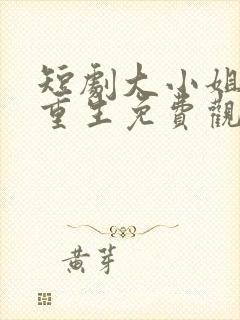 短劇大小姐
重生免費觀
黃芽